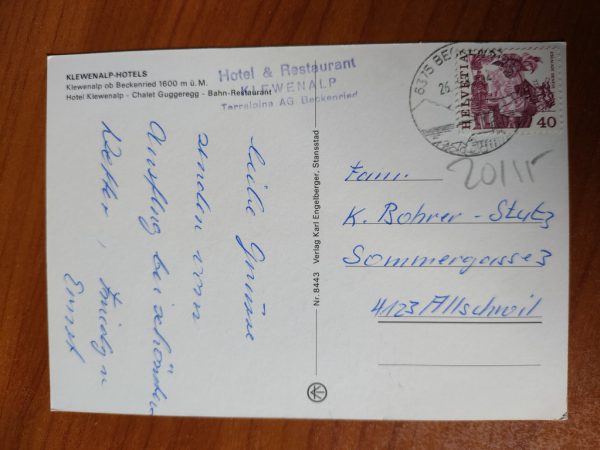 KLEWENALP-HOTELS
Klewenalp ob Beckenried 1600 m ü. M.
Hotel Klewenalp - Chalet Guggeregg - Bahn-Restaurant
Hotel & Restaurant
KLEWENALP
Terralpina AG Beckenried
liebe Grüsse
senden vom
Ausflug bei schönstem
Wetter,
Ernst
Nr. 8443 Verlag Karl Engelberger, Stansstad
6375
HELVETIA
40
20/15
Fam.
K. Bohrer - Stutz
Sommergasse 3
4123 Allschwil